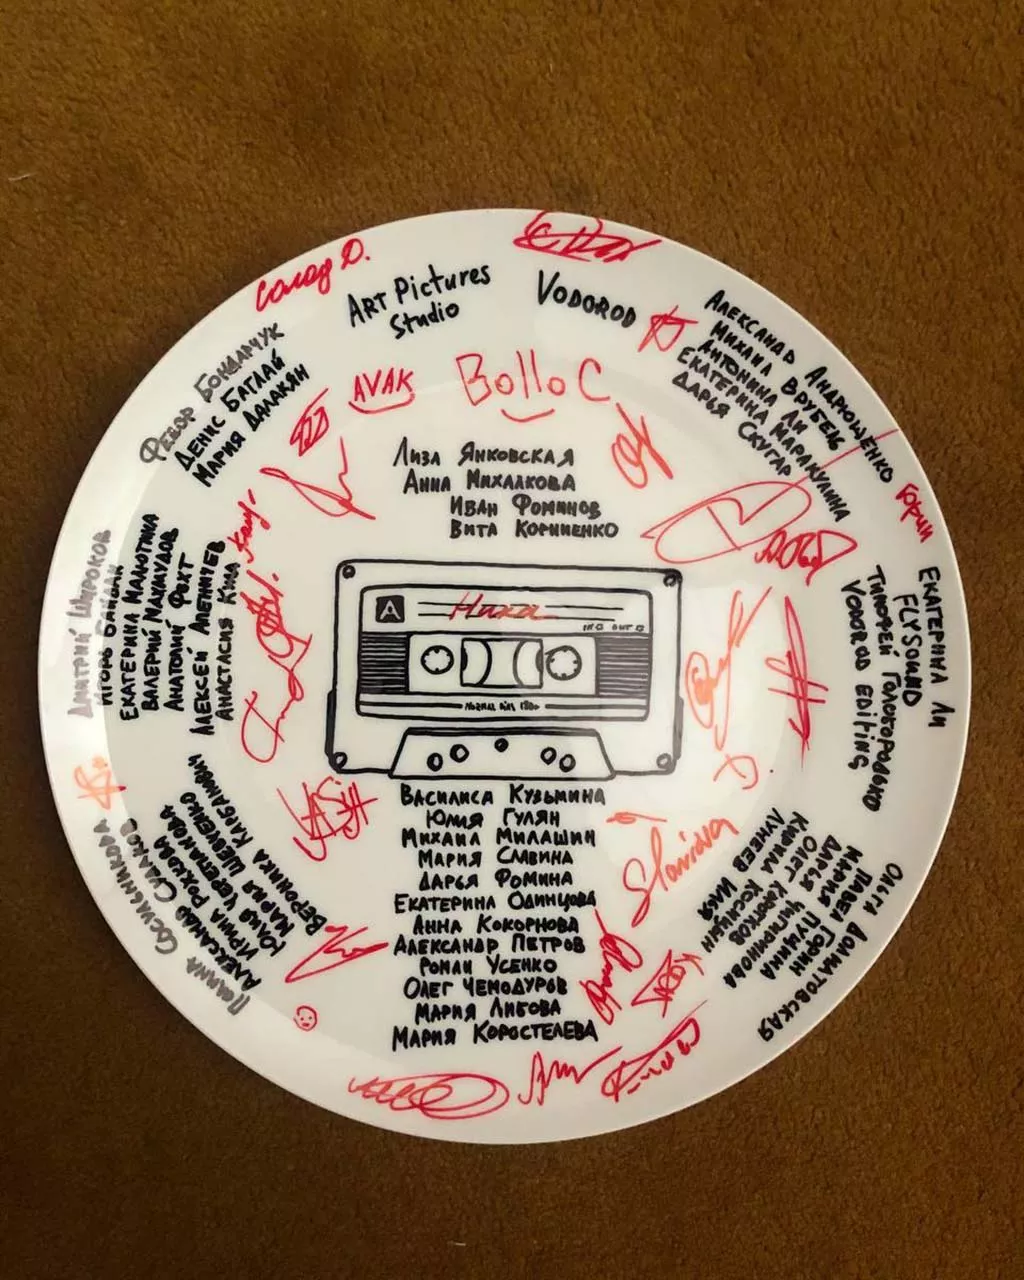 Солод О.
ART Pictures
Studio
VODOROD
Федор Бондарчук
Денис Баглай
Мария Далакян
AVAK
Bollo C
Александр Андрющенко
Михаил Врубель
Антонина Ли
Екатерина Маракулина
Дарья Скугар
Лиза Янковская
Анна Михалкова
Иван Фоминов
Вита Корниенко
Дмитрий Широков
Игорь
Екатерина Малютина
Валерий Махмудов
Анатолий Фохт
Алексей
Анастасия Ким
Ника
A
NORMAL BIAS
Екатерина Ли
FLYSOUND
Тимофей Голобородько
VODOROD EDITING
Василиса Кузьмина
Юлия Гулян
Михаил Милашин
Мария Славина
Дарья Фомина
Екатерина Одинцова
Анна Кокорнова
Александр Петров
Роман Усенко
Олег Чемодуров
Мария Липова
Мария Коростелева
Полина Сосильникова
Александр Судаков
Ирина Рохкова
Юлия Черепанова
Мария Шевченко
Вероника
Slavina
Ольга Долматовская
Павел Горин
Мария Пущина
Дарья Чигиринова
Олег Кирпиков
Кирилл Косицын
Лунеев Илья